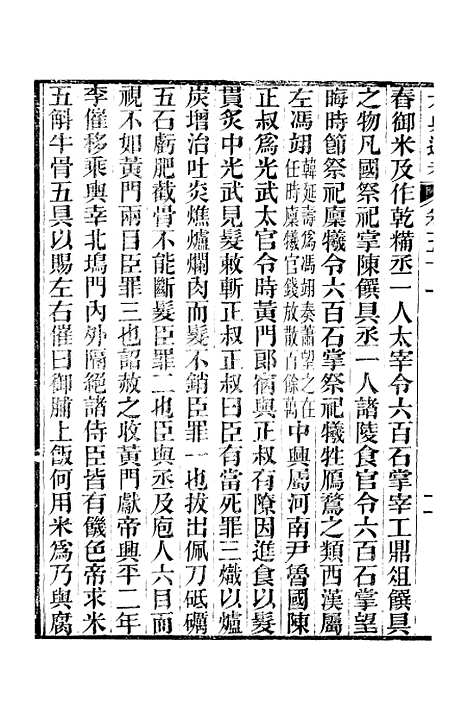 舂御米及作乾糒丞一人太宰令六百石掌宰工鼎俎饌具
之物凡國祭祀掌陳饌具丞一人諸陵食官令六百石掌望
晦時節祭祀廩犧令六百石掌祭祀犧牲鴈鶩之類西漢屬
左馮翊韓延壽為馮翊奏蕭望之在任時廩犧官錢放散百餘萬中興屬河南尹魯國陳
正叔為光武太官令時黃門郎病與正叔有隙因進食以髮
貫炙中光武見髮敕斬正叔正叔曰臣有當死罪三熾以爐
炭增冶吐炎燋爐爛肉而髮不銷臣罪一也拔出佩刀砥礪
五石虧肥截骨不能斷髮臣罪二也臣與丞及庖人六目而
視不如黃門兩目臣罪三也詔赦之收黃門獻帝興平二年
李傕移乘輿幸北塢門內外隔絕諸侍臣皆有饑色帝求米
五斛牛骨五具以賜左右傕曰御脯上飯何用米為乃與腐